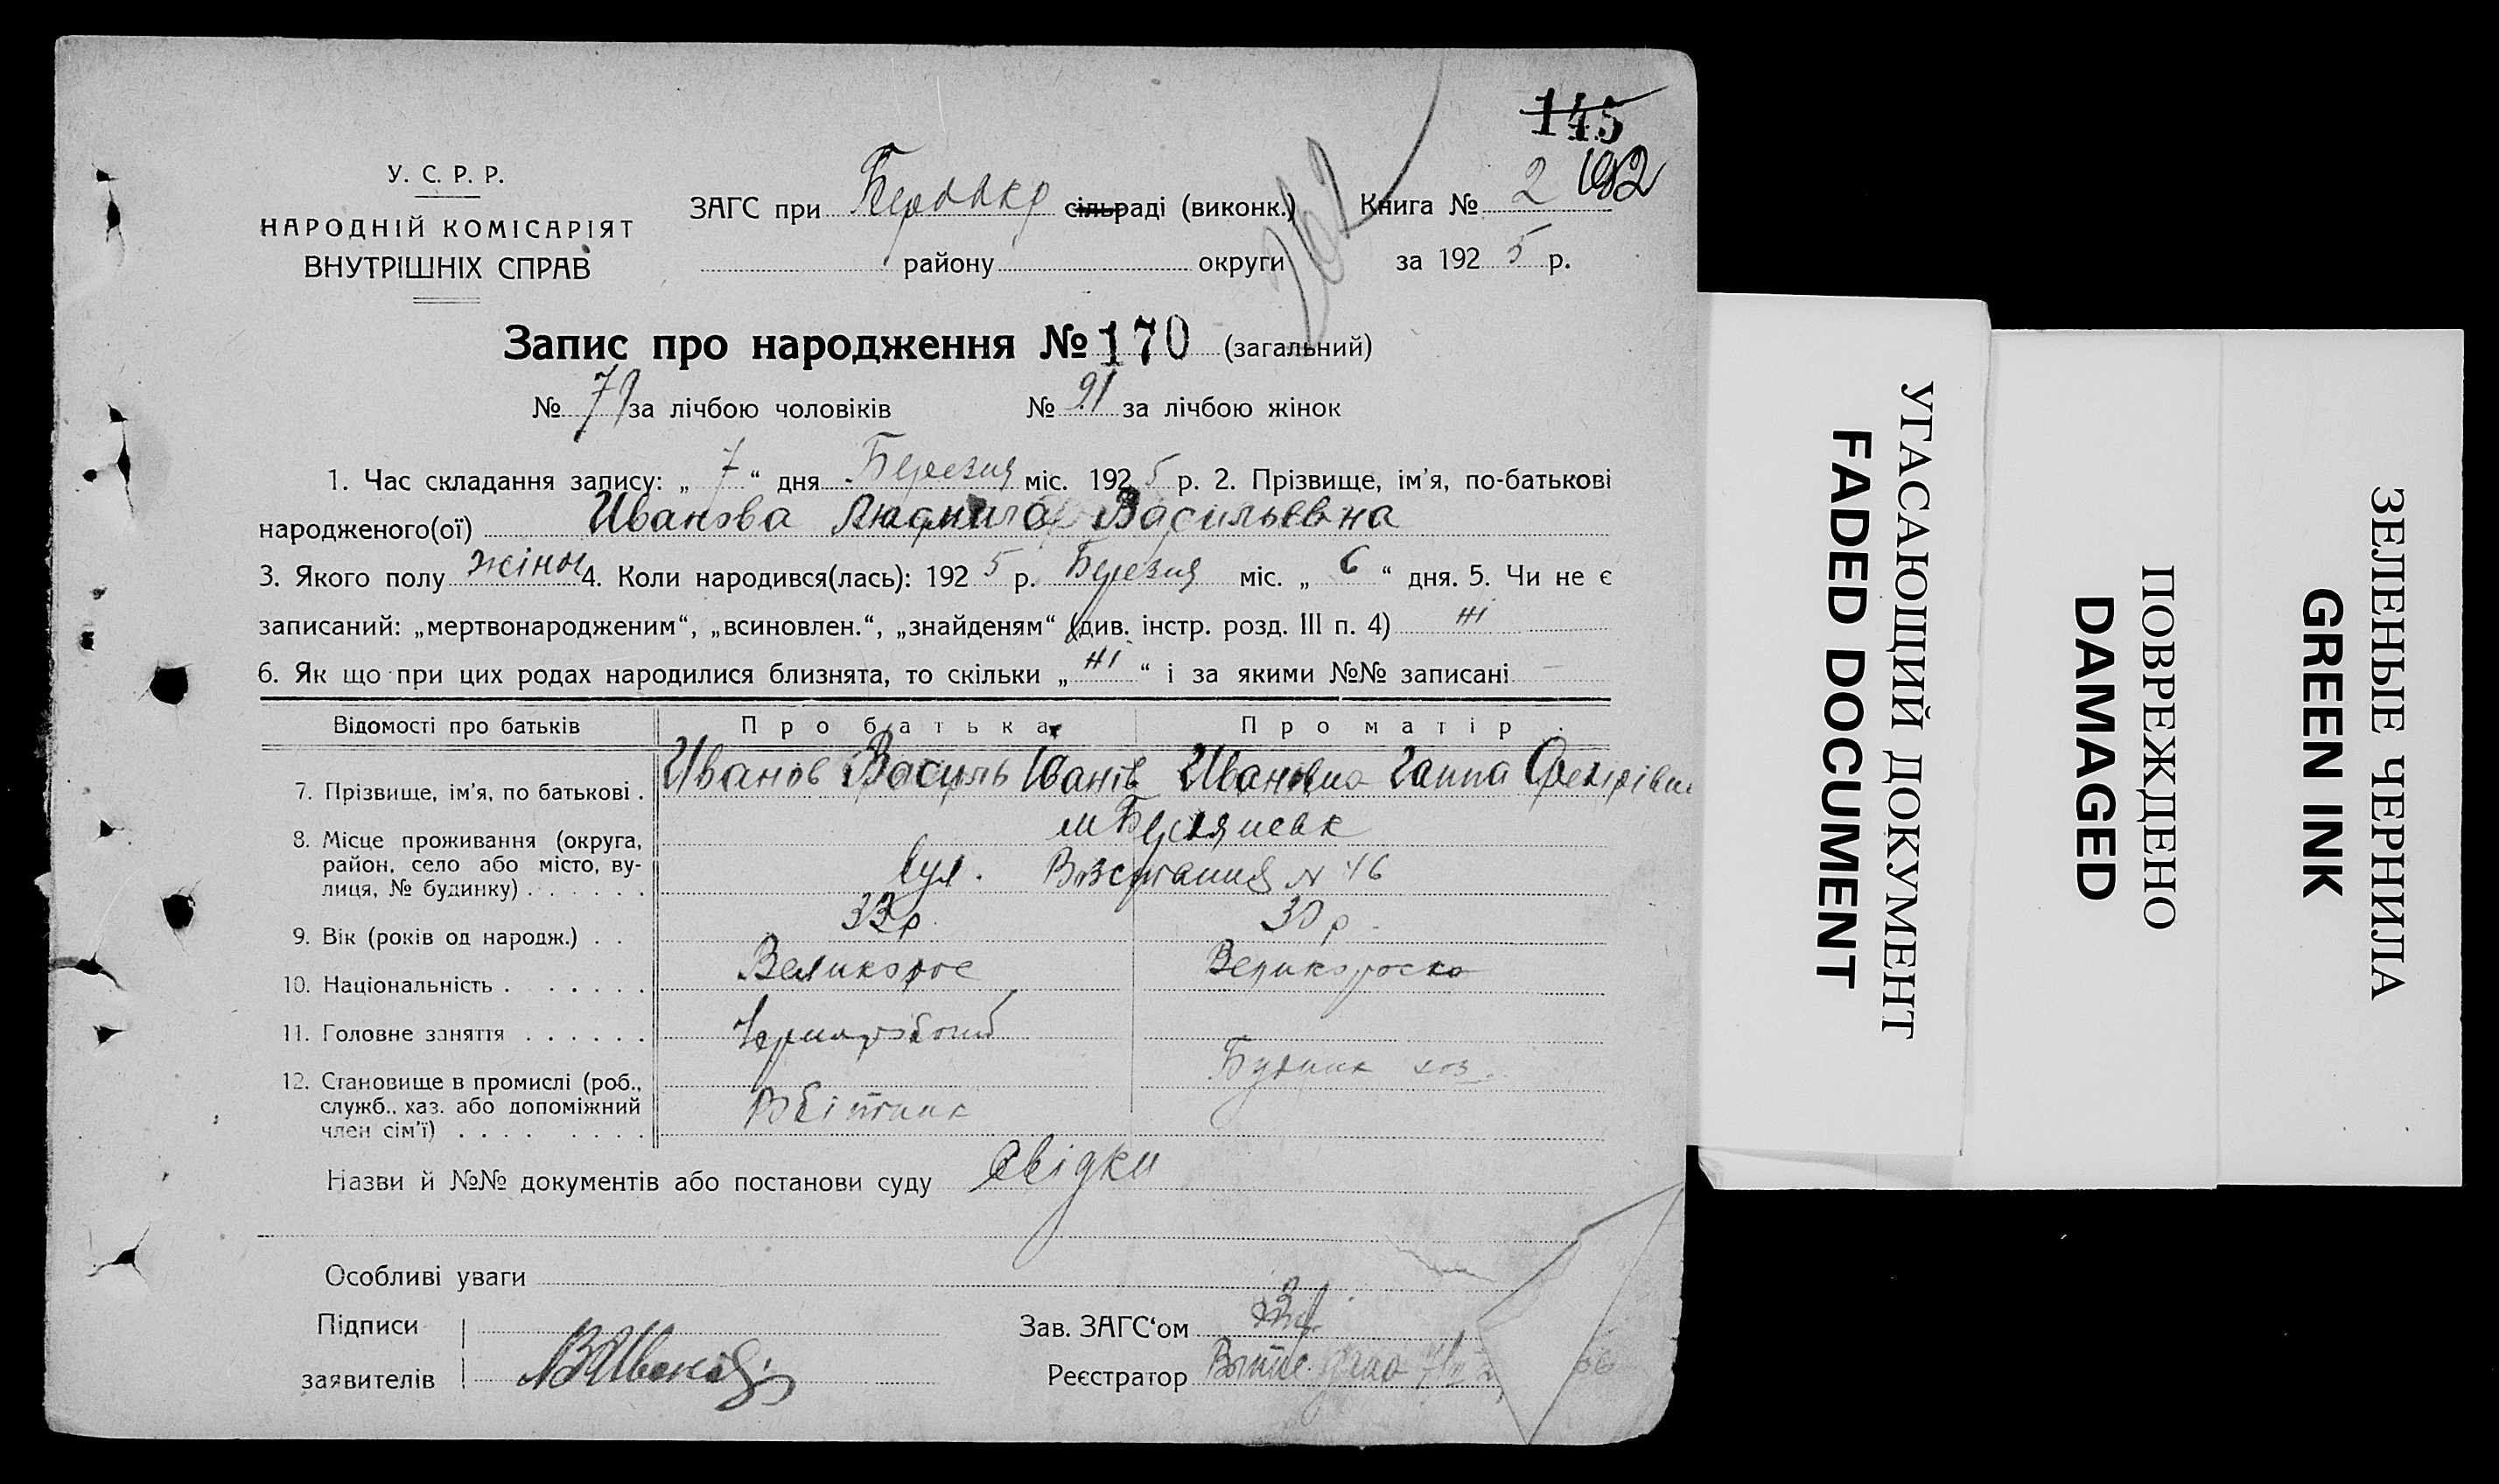 145
192
У. С. Р. Р.
НАРОДНІЙ КОМІСАРІЯТ
ВНУТРІШНІХ СПРАВ
ЗАГС при сільраді (виконк.) Книга № 2
району округи за 1925 р.
Запис про народження № 170 (загальний)
№ 79 за лічбою чоловіків № 91 за лічбою жінок
1. Час складання запису: „ 7 “ дня Березня міс. 1925 р. 2. Прізвище, ім’я, по-батькові
народженого(ої) Иванова Людмила Васильевна
3. Якого полу жіноч 4. Коли народився(лась): 1925 р. Березня міс. „ 6 “ дня. 5. Чи не є
записаний: „мертвонародженим“, „всиновлен.“, „знайденям“ (див. інстр. розд. III п. 4) ні
6. Як що при цих родах народилися близнята, то скільки „ ні “ і за якими №№ записані —
Відомості про батьків Про батька Про матір
7. Прізвище, ім’я, по батькові . Иванов Василь Іванів Ивановна Ганна
8. Місце проживання (округа, район, село або місто, вулиця, № будинку) . . . . . . м Бердянськ
вул. Возстания N 46
9. Вік (років од народж.) . . 33 р. 30 р.
10. Національність . . . . . . Великорос Великороска
11. Головне заняття . . . . . .
12. Становище в промислі (роб., служб., хаз. або допоміжний член сім’ї) . . . . . . . . Робітник
Назви й №№ документів або постанови суду Свідки
Особливі уваги
Підписи заявителів ВИванов
Зав. ЗАГС‘ом
Реєстратор
УГАСАЮЩИЙ ДОКУМЕНТ
FADED DOCUMENT
ПОВРЕЖДЕНО
DAMAGED
ЗЕЛЕНЫЕ ЧЕРНИЛА
GREEN INK